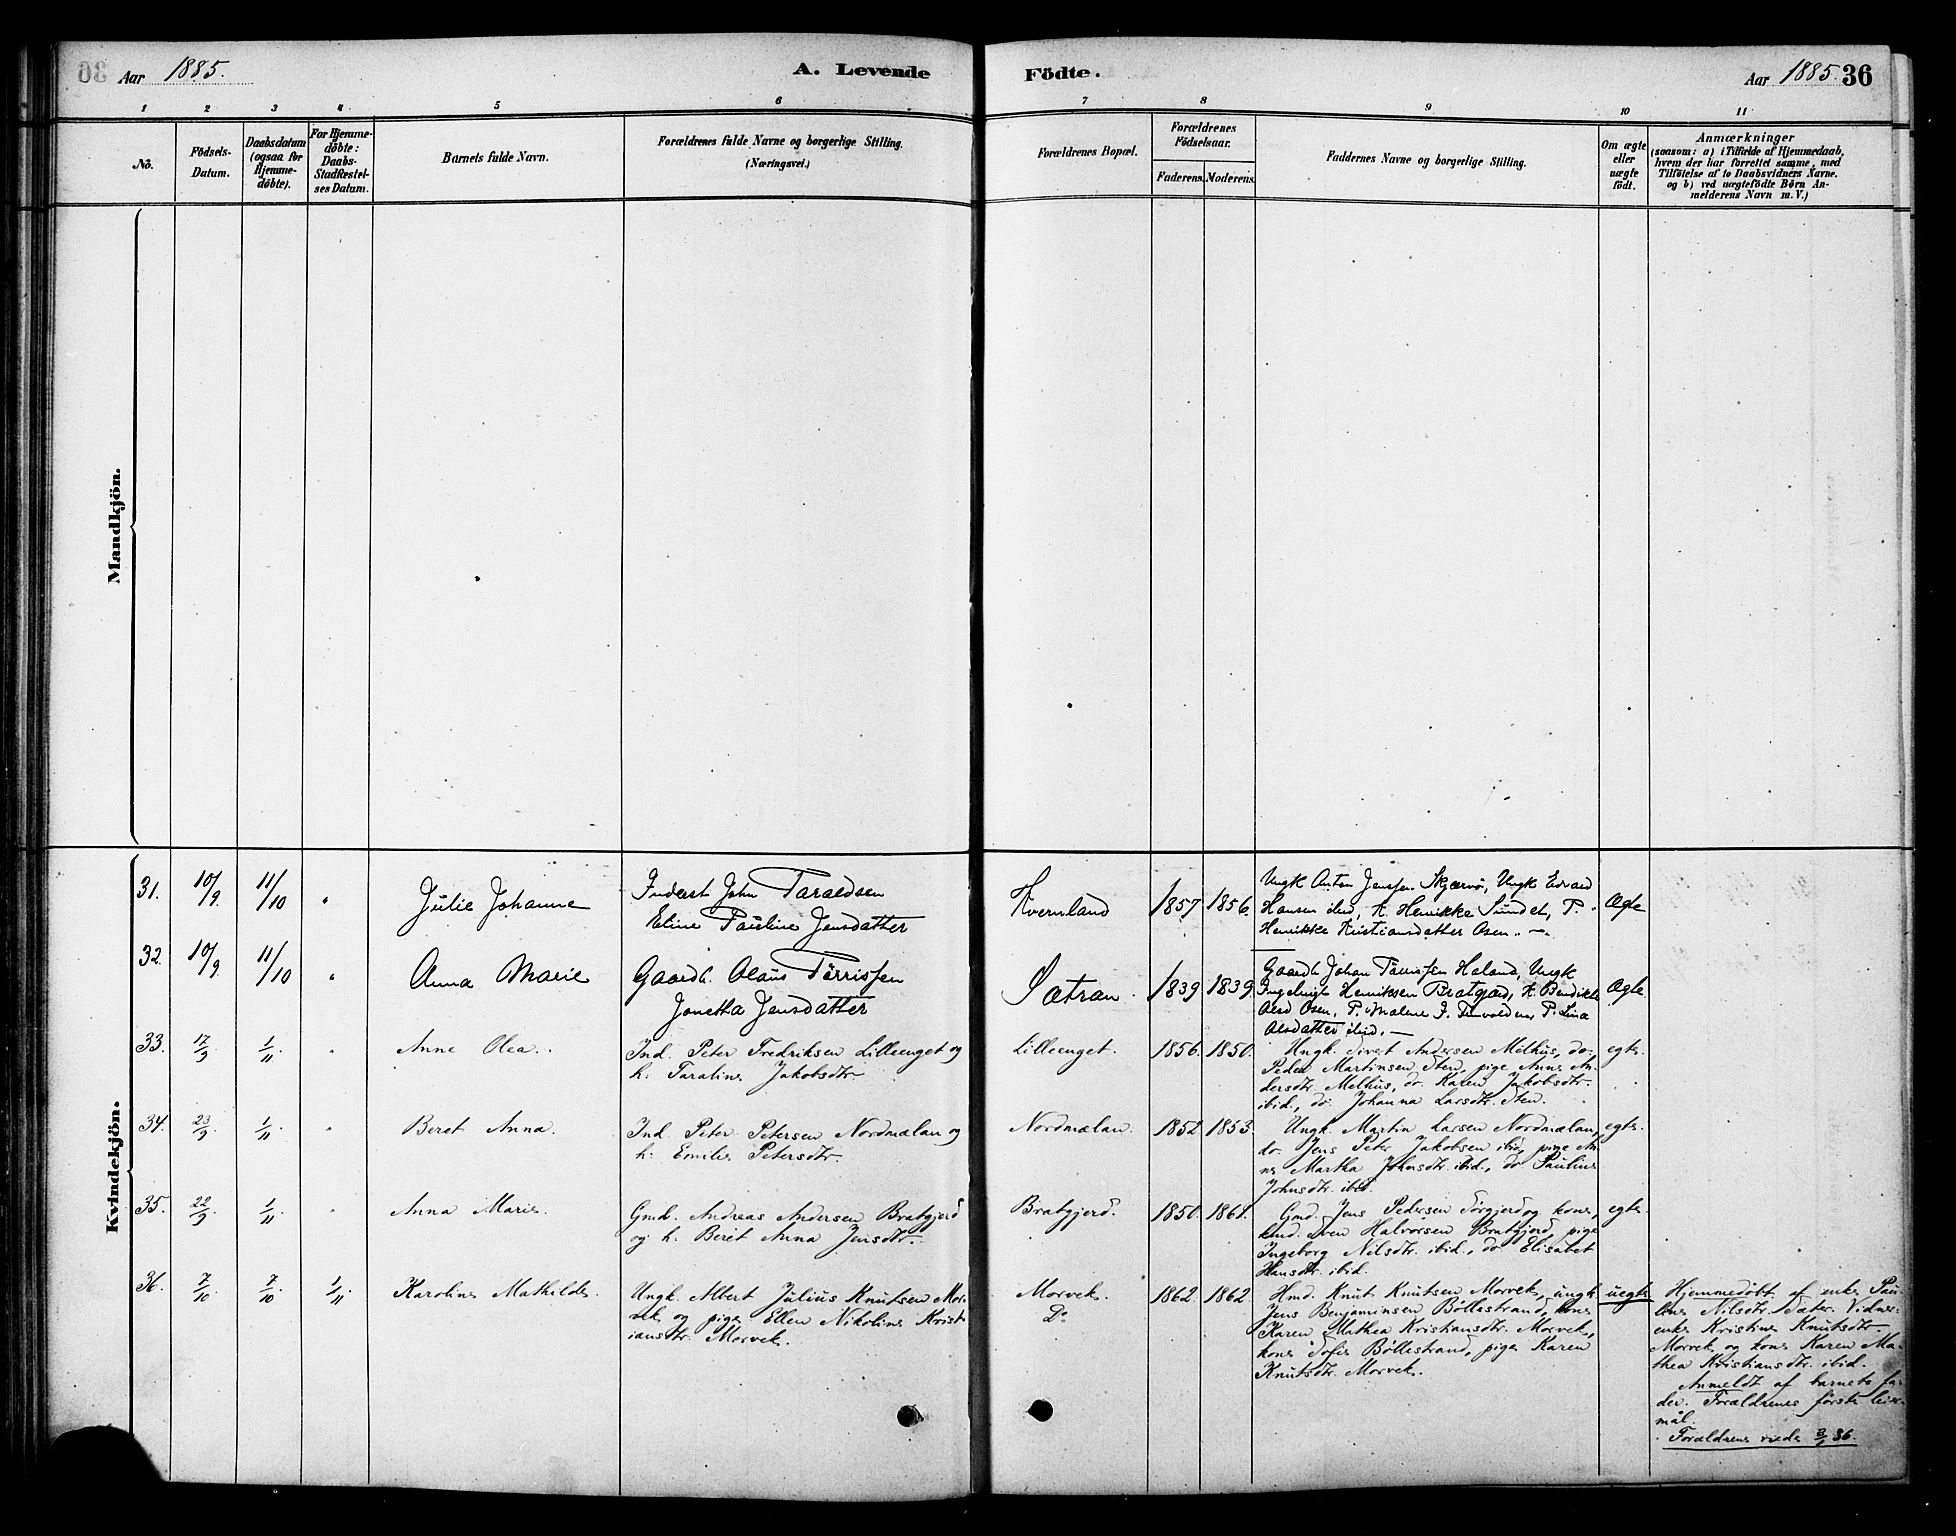 Aar 1885.
A. Levende
Födte.
Aar 1885. 36
1 2 3 4 5 6 7 8 9 10 11
No.
Födsels-
Datum.
Daabsdatum
(ogsaa for
Hjemme-
döbte).
For Hjemme-
döbte:
Daabs-
Stadfæstel-
ses Datum.
Barnets fulde Navn.
Forældrenes fulde Navne og borgerlige Stilling.
(Næringsvei.)
Forældrenes Bopæl.
Forældrenes
Födselsaar.
Faderens. Moderens.
Faddernes Navne og borgerlige Stilling.
Om ægte
eller
uægte
födt.
Anmærkninger
(saasom: a) i Tilfælde af Hjemmedaab,
hvem der har forrettet samme, med
Tilföielse af to Daabsvidners Navne.
og b) ved uægtefödte Börn An-
melderens Navn m. V.)
Mandkjön.
Kvindekjön.
31. 10/9 11/10 "
Julie Johanne
Inderst John Taraldsen
Eline Pauline Jensdatter
Kvernland
1857 1856.
Ungk Anton Jenssen Skjærvö, Ungk Edvard
Hansen ibid, K. Henrikke Sundet, P.
Henrikke Kristiansdatter Osen.
Ægte
32. 10/9 11/10 "
Anna Marie
Gaardb. Olaus Törrissen
Jonetha Jensdatter
Sætran.
1839 1839.
Gaardb. Johan Törrissen Haland, Ungk
Ingebrigt Henriksen Bratgjærd, K. Bendikte
Osen, P. Malene J.
P. Lina
Olsdatter ibid.
Ægte
33. 17/9. 1/11. "
Anne Olea.
Ind. Peter Fredriksen Lilleenget og
h. Taraline Jakobsdtr.
Lilleenget.
1856. 1850.
Ungk. Sivert Andersen Melhus, do.
Peder Martinsen Sten, pige Anne An-
dersdtr. Melhus, do. Karen Jakobsdtr.
ibid., do. Johanna Larsdtr. Sten.
egte.
34. 23/9 1/11. "
Beret Anna.
Ind. Peter Petersen Nordmælan og
h. Emilie Petersdtr.
Nordmælan.
1852 1853.
Ungk. Martin Larsen Nordmælan,
do. Jens Peter Jakobsen ibid, pige An-
ne Martha Johnsdtr. ibid., do Pauline
Johnsdtr. ibid.
egte.
35. 22/9 1/11 "
Anna Marie.
Gmd. Andreas Andersen Bratgjerd
og h. Beret Anna Jensdtr.
Bratgjerd.
1850. 1861.
Gmd. Jens Pedersen Sörgjerd og kone,
Sven Halvorsen Bratgjerd, pige
Ingeborg Nilsdtr. ibid., do Elisabet
Hansdtr. ibid.
egte.
36. 7/10 7/10 1/11
Karoline Mathilde.
Ungk. Albert Julius Knutsen Mor-
vek og pige Ellen Nikoline Krist-
iansdtr. Morvek.
Morvek.
Do
1862. 1862
Hmd. Knut Knutsen Morvek, ungk.
Jens Benjaminsen Böllestrand, kone
Karen Mathea Kristiansdtr. Morvek,
kone Sofie Böllestrand, pige Karen
Knutsdtr. Morvek.
uegte
Hjemmedöbt af enke Pau-
line Nilsdtr. Sæter. Vidner:
enke Kristine Knutsdtr.
Morvek og kone Karen Ma-
thea Kristiansdtr. ibid.
Anmeldt af barnets fa-
der. Forældrenes förste leier-
mål.
Forældrene viede 3/1 86.